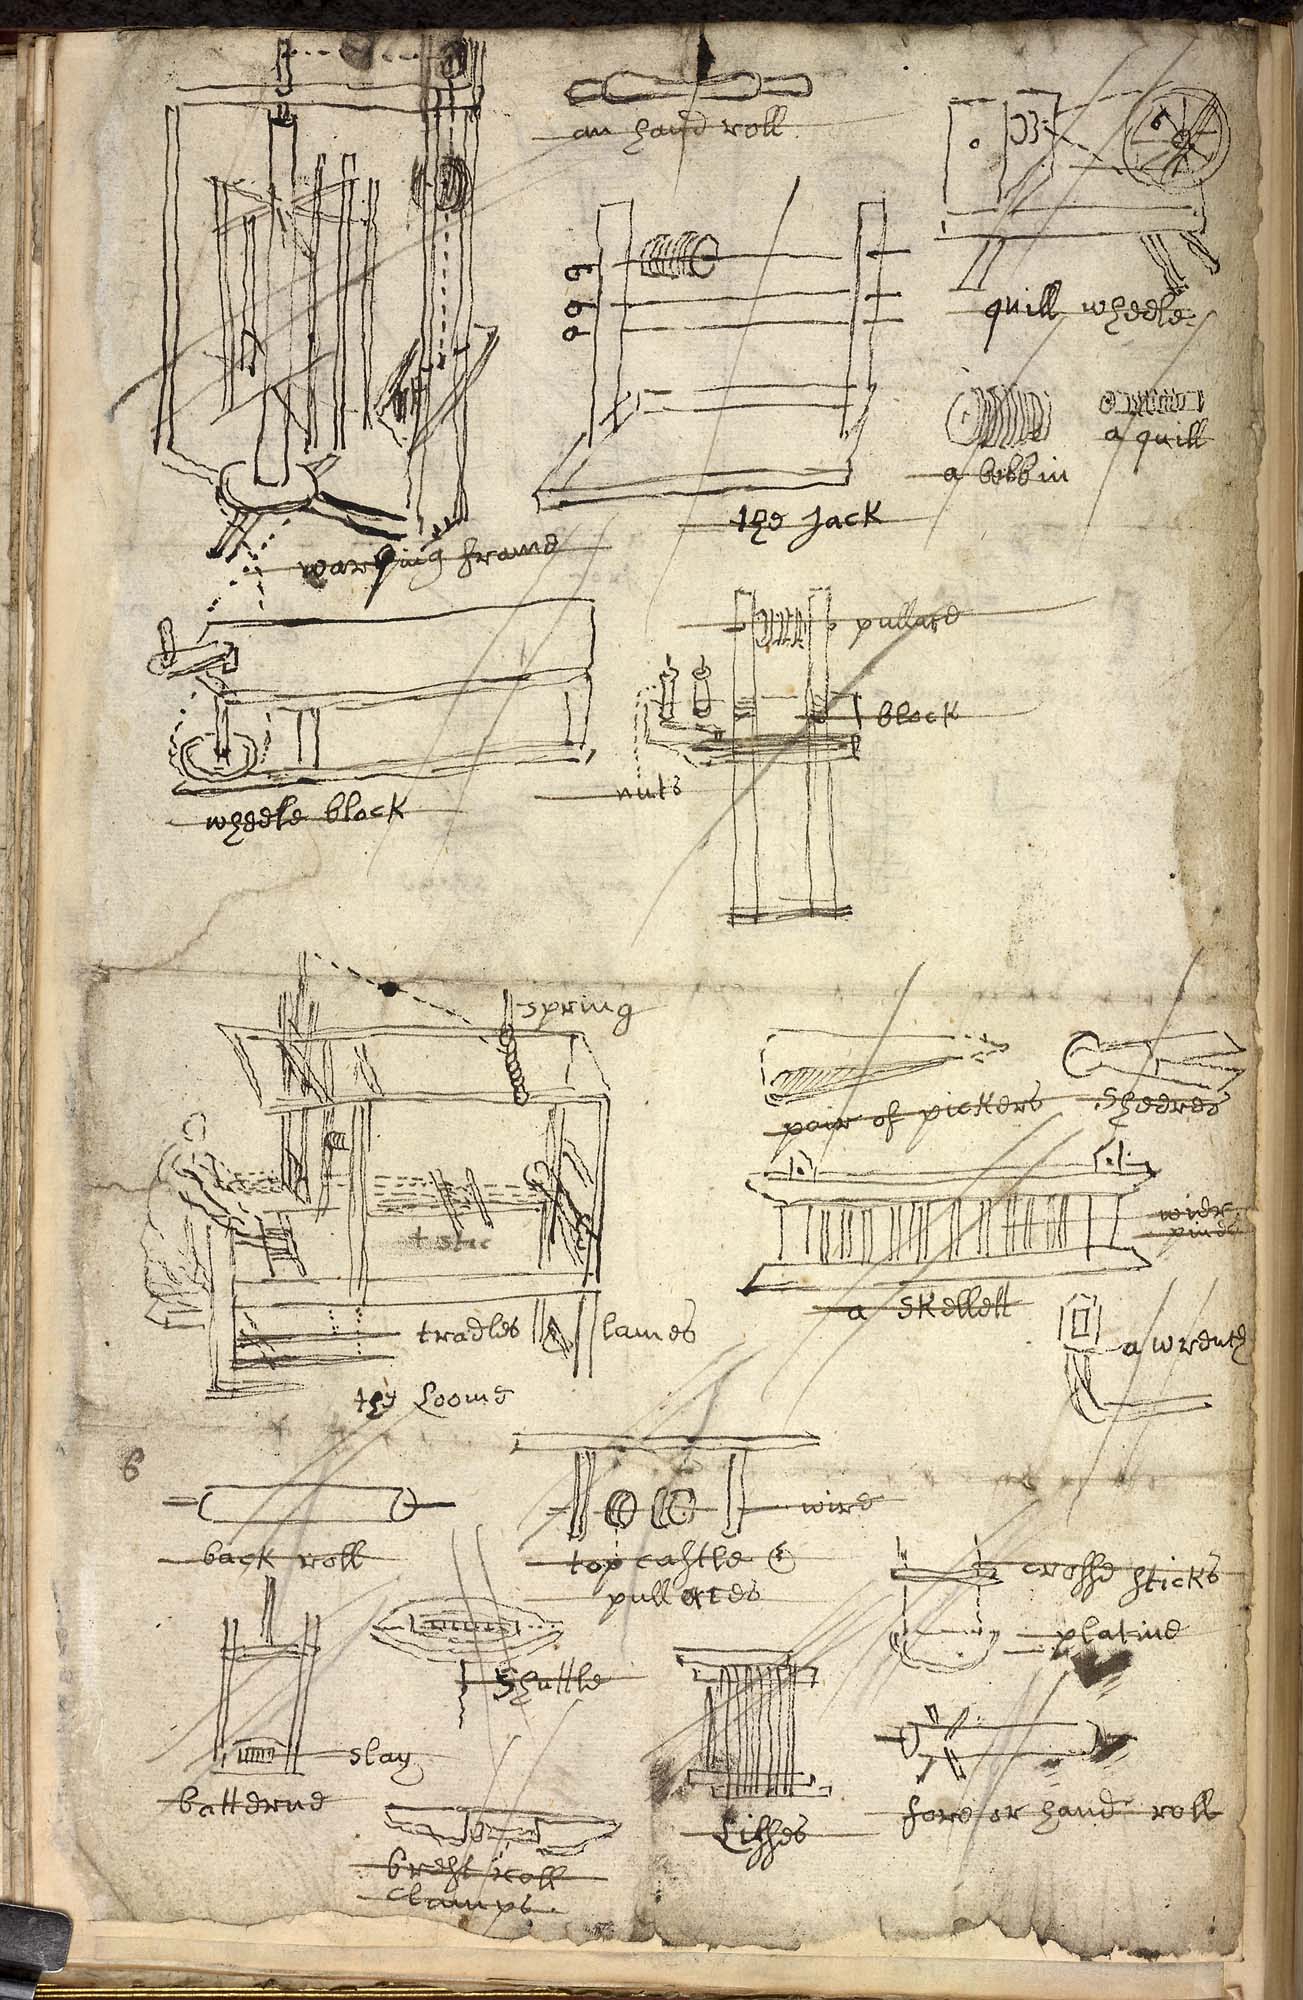 an hand roll
quill wheele
a bobbin
a quill
the Jack
warping frame
pullard
block
nuts
wheele block
spring
pair of pickers
sheeres
wier
pines
a skellett
tradles
lames
the Loome
a wrench
6
back roll
wire
top castle &
pullaces
crosse sticks
platine
shuttle
slay
batterne
brest roll
clamps.
Lisses
fore or hand roll